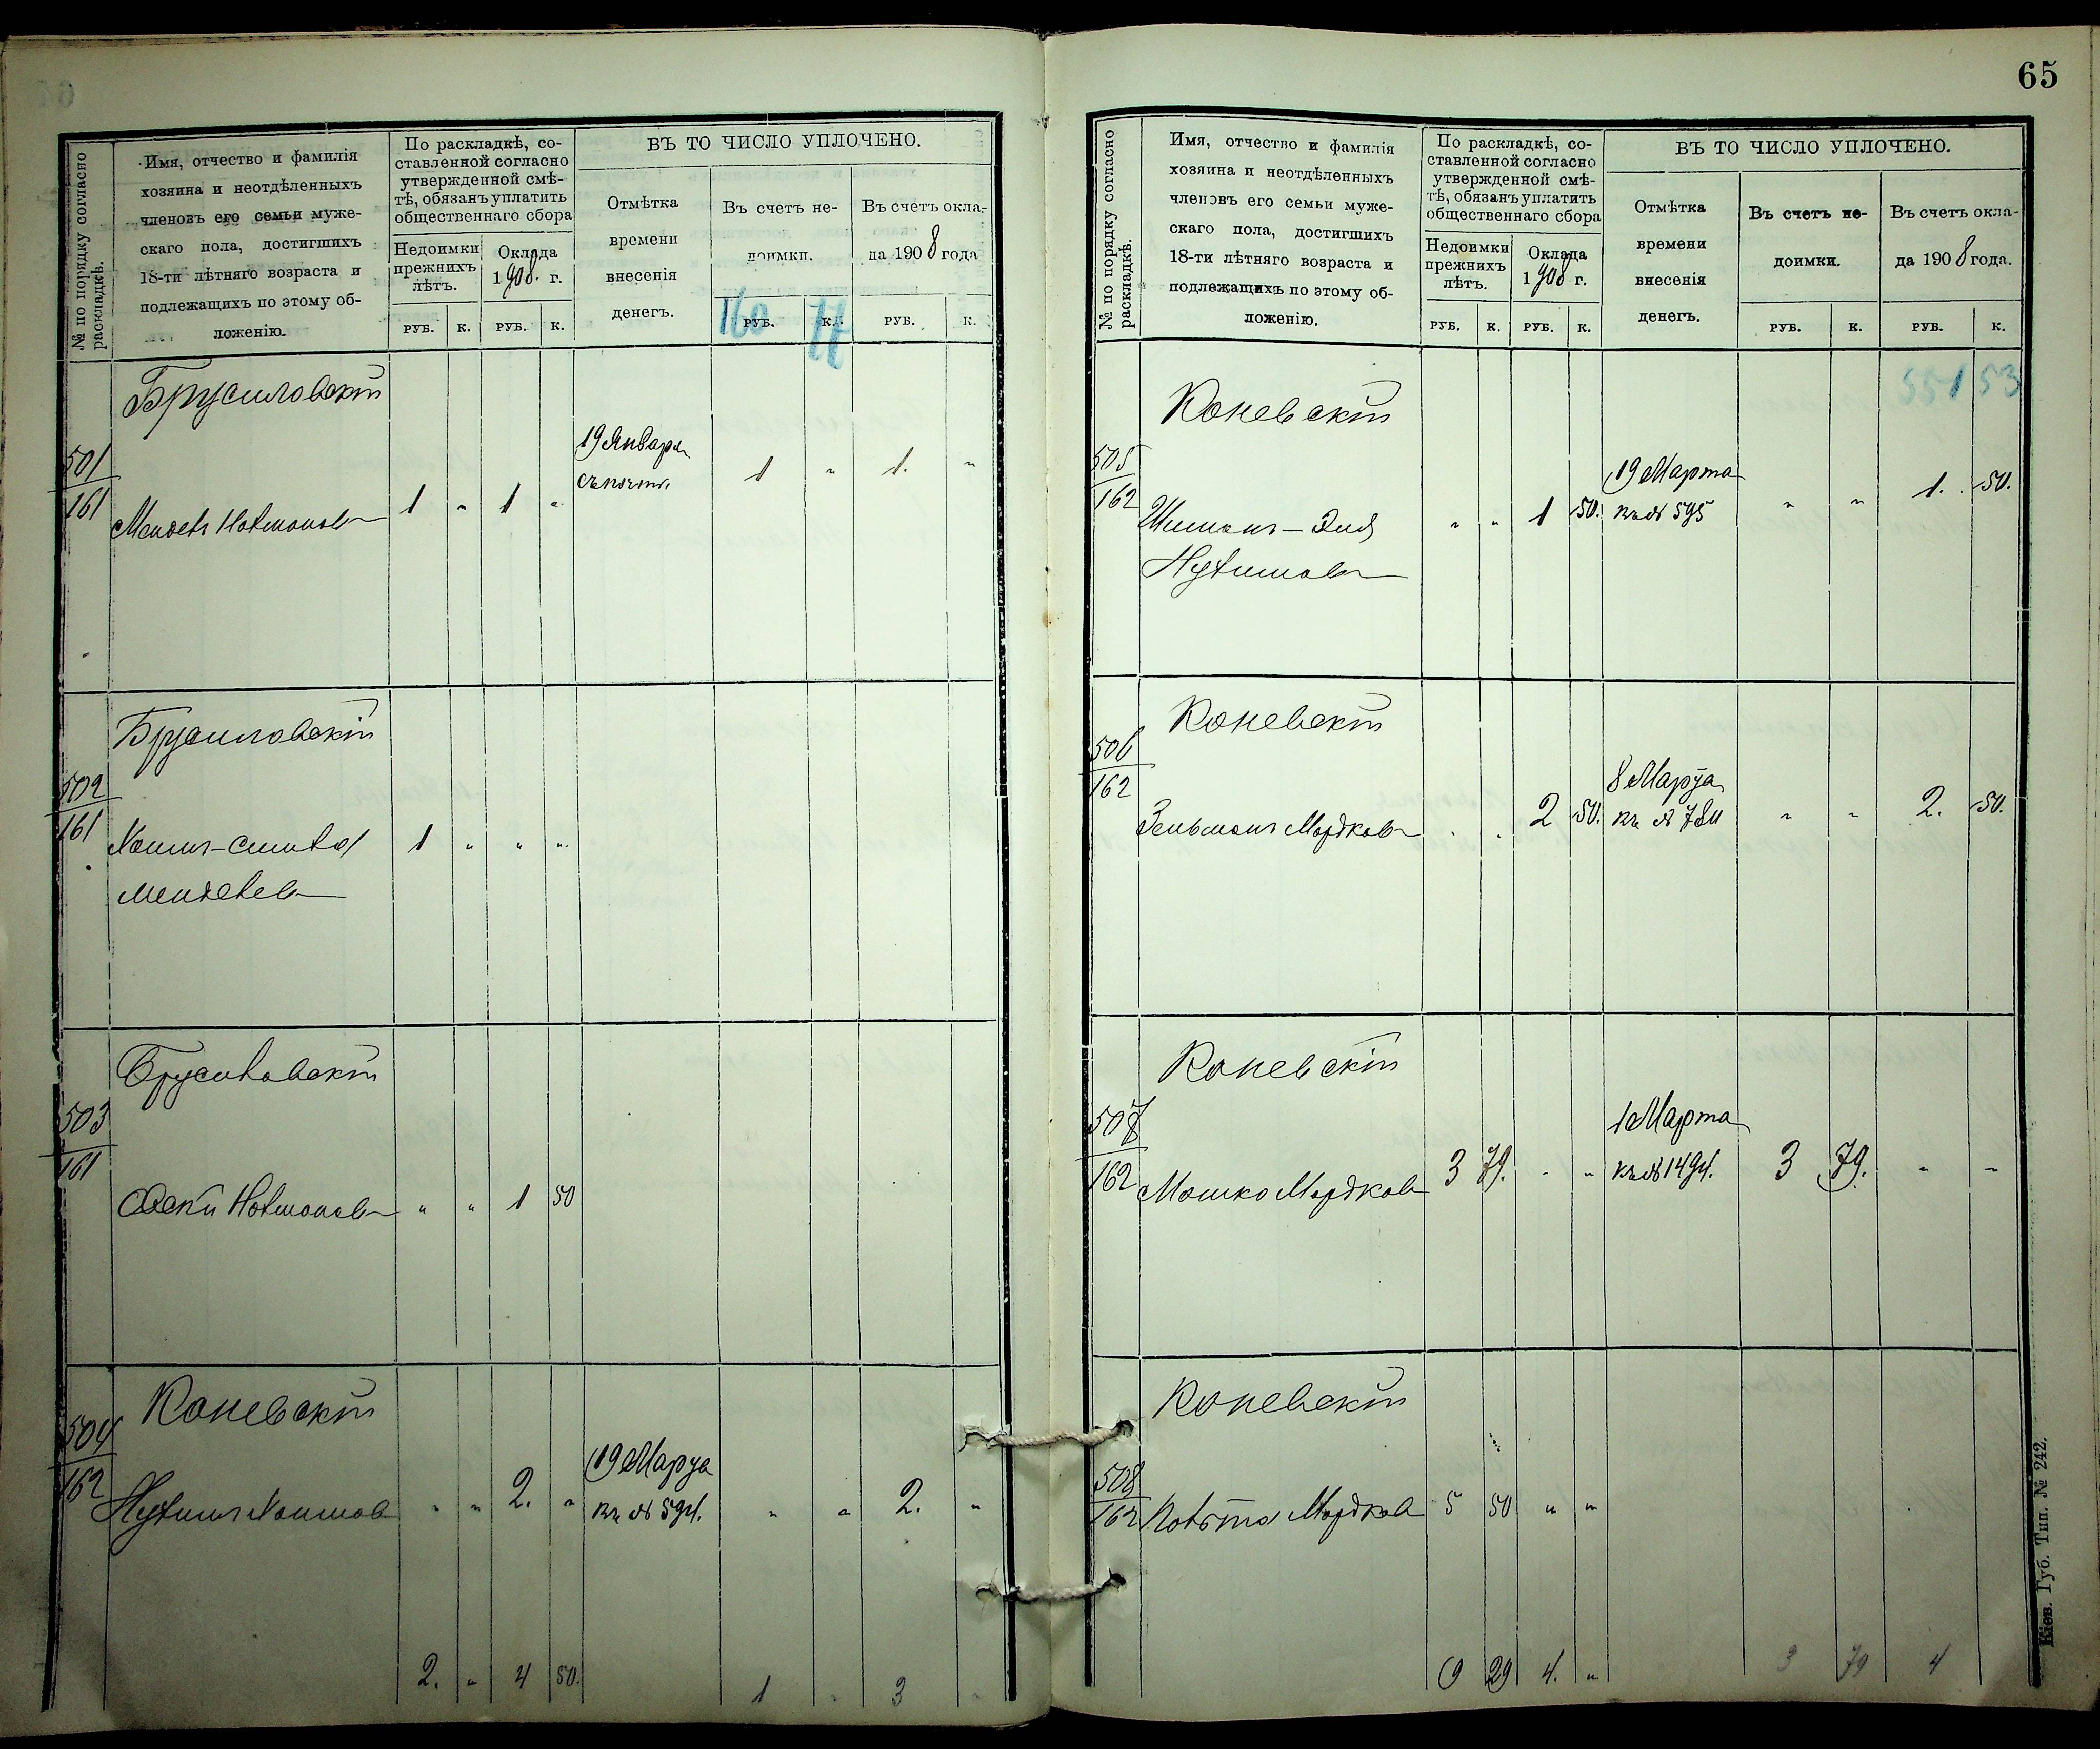 № по порядку согласно раскладкѣ.
Имя, отчество и фамилія
хозяина и неотдѣленныхъ
членовъ его семьи муже-
скаго пола, достигшихъ
18-ти лѣтняго возраста и
подлежащихъ по этому об-
ложенію.
По раскладкѣ, со-
ставленной согласно
утвержденной смѣ-
тѣ, обязанъ уплатить
общественнаго сбора
Недоимки
прежнихъ
лѣтъ.
Оклада
1908 г.
ВЪ ТО ЧИСЛО УПЛОЧЕНО.
Отмѣтка
времени
внесенія
денегъ.
Въ счетъ не-
доимки.
Въ счетъ окла-
да 1908 года
РУБ. К. РУБ. К. РУБ. К. РУБ. К.
160
Брусиловскій
501
161
1 " 1 " 19 Января 1 " 1. "
Брусиловскій
502
161
1 " " "
Менделев
Брусиловскій
503
161
" " 1 50
Каневскій
504
162
Нухим Хаимов " " 2. " 19 Марта
къ № 594. " " 2. "
2. " 4 50. 1 " 3 "
65
№ по порядку согласно раскладкѣ.
Имя, отчество и фамилія
хозяина и неотдѣленныхъ
членовъ его семьи муже-
скаго пола, достигшихъ
18-ти лѣтняго возраста и
подлежащихъ по этому об-
ложенію.
По раскладкѣ, со-
ставленной согласно
утвержденной смѣ-
тѣ, обязанъ уплатить
общественнаго сбора
Недоимки
прежнихъ
лѣтъ.
Оклада
1908 г.
ВЪ ТО ЧИСЛО УПЛОЧЕНО.
Отмѣтка
времени
внесенія
денегъ.
Въ счетъ не-
доимки.
Въ счетъ окла-
да 1908 года.
РУБ. К. РУБ. К. РУБ. К. РУБ. К.
551 53
Каневскій
505
162
" " 1 50. 19 Марта
къ № 595 " " 1. 50.
Нухимов
Каневскій
506
162
Зельман Мордков " " 2 50. 8 Марта
къ № " " 2. 50.
Каневскій
507
162
Мошко Мордков 3 79. " " 1 Марта
къ № 1494. 3 79. " "
Каневскій
508
162
Мордков 5 50 " "
9 29 4. " 3 79 4
Кіев. Губ. Тип. № 242.